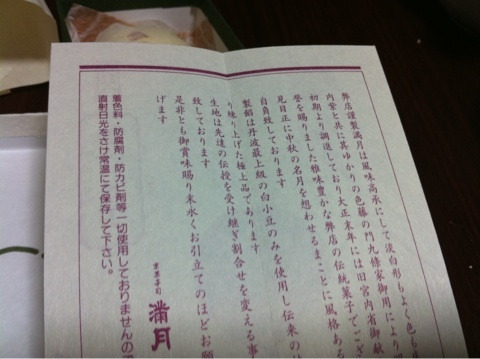 弊店謹製満月は風味高承にして淡白形もよく色も
内栄と共に其ゆかりの色藤の門九條家御用により
初期より調進しており大正末年には旧宮内省御献
誉を賜りました雅味豊かな弊店の伝統菓子でござ
見目正に中秋の名月を想わせるまことに風格ある
自負致しております
製餡は丹波最上級の白小豆のみを使用し伝来の
り練り上げた極上品であります
生地は先達の伝授を受け継ぎ割合せを変える事
致しております
是非とも御賞味賜り末永くお引立てのほどお願
げます
京菓子司 満月
着色料・防腐剤・防カビ剤等一切使用しておりませんので
直射日光をさけ常温にて保存して下さい。